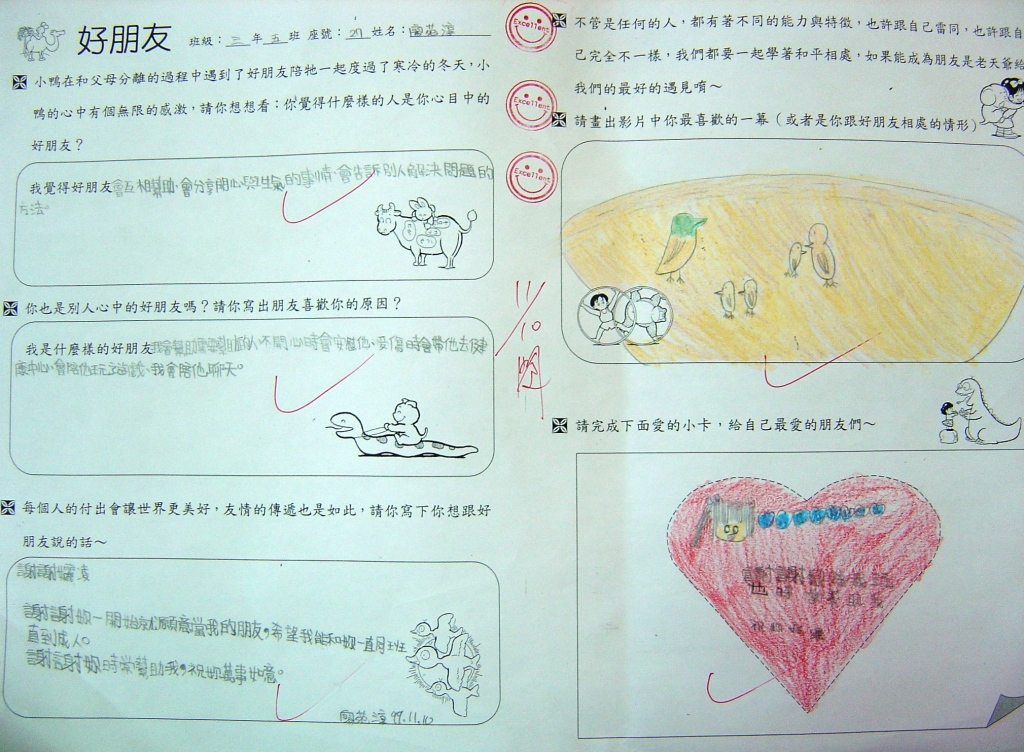 好朋友 班級：三年五班 座號：21 姓名：
小鴨在和父母分離的過程中遇到了好朋友陪牠一起度過了寒冷的冬天，小
鴨的心中有個無限的感激，請你想想看：你覺得什麼樣的人是你心目中的
好朋友？
我覺得好朋友會互相幫助、會分享開心與生氣的事情、會告訴別人解決問題的
方法。
你也是別人心中的好朋友嗎？請你寫出朋友喜歡你的原因？
我是什麼樣的好朋友 人不開心時會安慰他、受傷時會帶他去健
康中心、會陪他玩 我會陪他聊天。
每個人的付出會讓世界更美好，友情的傳遞也是如此，請你寫下你想跟好
朋友說的話～
謝謝
謝謝妳一開始就願意當我的朋友，希望我能和妳一直
直到成人。
謝謝妳時常幫助我，祝妳萬事如意。
99.11.10
Excellent
Excellent
Excellent
11/10
不管是任何的人，都有著不同的能力與特徵，也許跟自己雷同，也許跟自
己完全不一樣，我們都要一起學著和平相處，如果能成為朋友是老天爺給
我們的最好的遇見唷～
請畫出影片中你最喜歡的一幕（或者是你跟好朋友相處的情形）
請完成下面愛的小卡，給自己最愛的朋友們～
謝謝